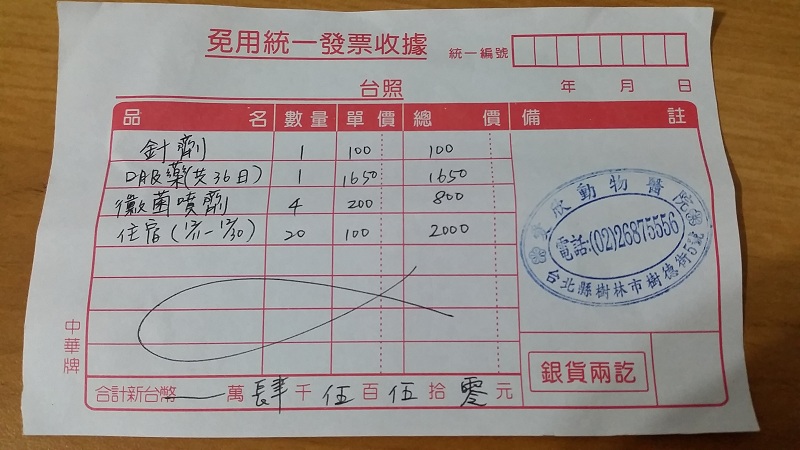 免用統一發票收據
統一編號
台照 年 月 日
品名 數量 單價 總價 備註
針劑 1 100 100
口服藥(共36日) 1 1650 1650
黴菌噴劑 4 200 800
住宿 20 100 2000
欣動物醫院
電話:(02)26875556
台北縣樹林市樹德街5號
中華牌
銀貨兩訖
合計新台幣 萬 肆 千 伍 百 伍 拾 零 元